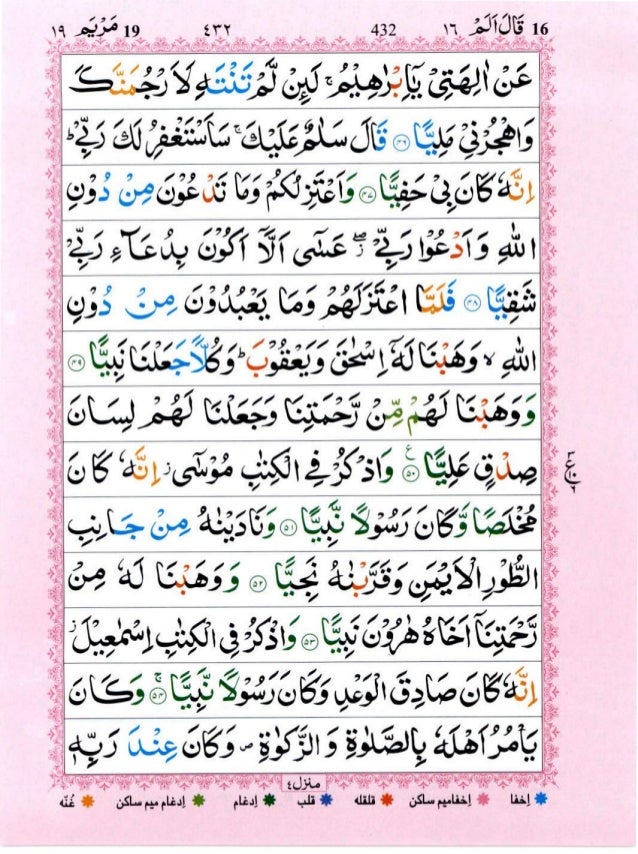 16 قَالَ اَلَمْ ١٦ 432 ٤٣٢ 19 مَرْيَم ١٩
عَنْ اٰلِهَتِیْ یٰۤاِبْرٰهِیْمُ ۚ لَىِٕنْ لَّمْ تَنْتَهِ لَاَرْجُمَنَّكَ
وَاهْجُرْنِیْ مَلِیًّا ﴿۴۶﴾ قَالَ سَلٰمٌ عَلَیْكَ ۚ سَاَسْتَغْفِرُ لَكَ رَبِّیْ ؕ
اِنَّهٗ كَانَ بِیْ حَفِیًّا ﴿۴۷﴾ وَاَعْتَزِلُكُمْ وَمَا تَدْعُوْنَ مِنْ دُوْنِ
اللّٰهِ وَاَدْعُوْا رَبِّیْ ۖؗ عَسٰۤی اَلَّاۤ اَكُوْنَ بِدُعَآءِ رَبِّیْ
شَقِیًّا ﴿۴۸﴾ فَلَمَّا اعْتَزَلَهُمْ وَمَا یَعْبُدُوْنَ مِنْ دُوْنِ
اللّٰهِ ۙ وَهَبْنَا لَهٗۤ اِسْحٰقَ وَیَعْقُوْبَ ؕ وَكُلًّا جَعَلْنَا نَبِیًّا ﴿۴۹﴾
وَوَهَبْنَا لَهُمْ مِّنْ رَّحْمَتِنَا وَجَعَلْنَا لَهُمْ لِسَانَ
صِدْقٍ عَلِیًّا ﴿۵۰﴾ۧ وَاذْكُرْ فِی الْكِتٰبِ مُوْسٰۤی ؗ اِنَّهٗ كَانَ
مُخْلَصًا وَّكَانَ رَسُوْلًا نَّبِیًّا ﴿۵۱﴾ وَنَادَیْنٰهُ مِنْ جَانِبِ
الطُّوْرِ الْاَیْمَنِ وَقَرَّبْنٰهُ نَجِیًّا ﴿۵۲﴾ وَوَهَبْنَا لَهٗ مِنْ
رَّحْمَتِنَاۤ اَخَاهُ هٰرُوْنَ نَبِیًّا ﴿۵۳﴾ وَاذْكُرْ فِی الْكِتٰبِ اِسْمٰعِیْلَ ؗ
اِنَّهٗ كَانَ صَادِقَ الْوَعْدِ وَكَانَ رَسُوْلًا نَّبِیًّا ﴿۵۴﴾ۚ وَكَانَ
یَاْمُرُ اَهْلَهٗ بِالصَّلٰوةِ وَالزَّكٰوةِ ۪ وَكَانَ عِنْدَ رَبِّهٖ
منزل ٤
إخفا إخفامیم ساکن قلقله قلب إدغام إدغام میم ساکن غُنّه